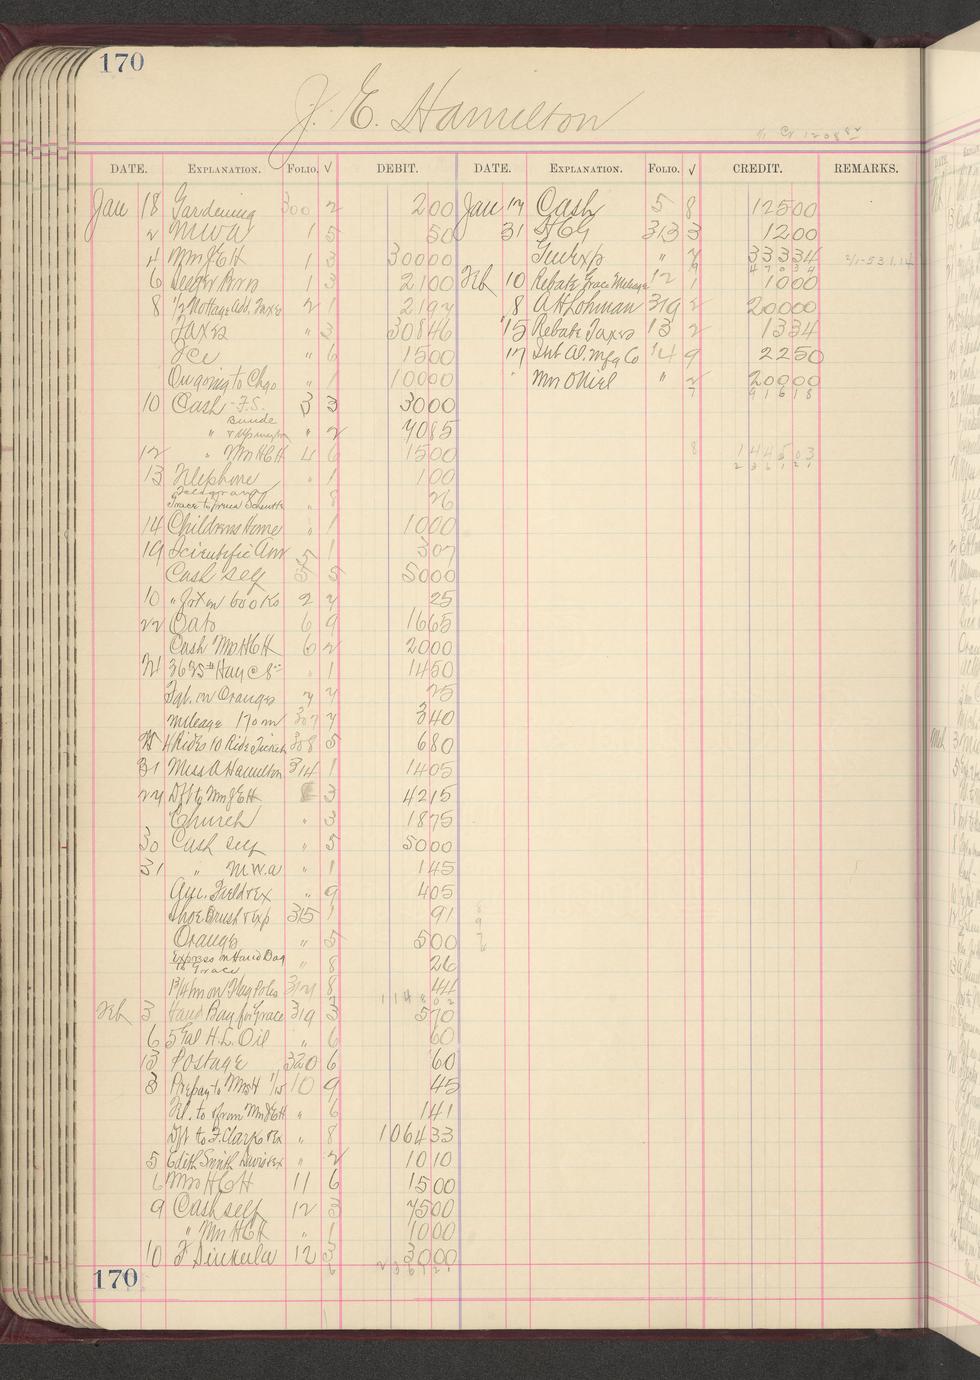 170
J. E. Hamilton
Cr 1208 82
DATE. EXPLANATION. FOLIO. √ DEBIT. DATE. EXPLANATION. FOLIO. √ CREDIT. REMARKS.
Jan 18 Gardening 300 2 200 Jan 17 Cash 5 8 12500
2 M W A 1 5 50 31 H C G 313 3 1200
4 Mrs J E H 1 3 30000 " 7 33334
6 1 3 2100 Feb 10 Rebate Grace Mileage 12 1 1000
8 1/2 Nottage Add. Taxes 2 1 2197 8 A H Lohman 319 2 20000
Taxes " 3 30846 15 Rebate Taxes 13 2 1334
Ice " 6 1500 17 Int Al. Mfg Co 14 9 2250
On going to Chgo " 1 10000 " Mrs O Niel " 2 20000
91618
10 Cash - F.S. 3 3 3000
Bunde
" " 2 7085
12 " Mrs H C H 4 6 1500 8 144503
236121
13 Telephone " 1 100
Telegram
Grace to from " 8 26
14 Childrens Home " 1 1000
19 Scientific Am 5 1 307
Cash self 5 5 5000
10 " frt on books 2 7 25
22 Oats 6 9 1665
Cash Mrs H C H 6 2 2000
21 3625 # Hay @ 8 " 1 1450
on Oranges 7 7 25
Mileage 170 m 307 7 340
25 4 Rides 10 Ride Ticket 308 5 680
31 Miss A Hamilton 314 1 1405
27 Dft to Mrs J E H 3 4215
Church " 3 1875
30 Cash self " 5 5000
31 " M.W.A " 1 145
Field & Ex " 9 405
Shoe Brush & Exp 315 1 91
Orange " 5 500
Express on Hand Bag
to Grace " 8 26
1 3/4 hrs on Flag Poles 317 8 44
114802
Feb 3 Hand Bag for Grace 319 3 570
6 5 Gal H.L. Oil " 6 60
13 Postage 320 6 60
3 Prepay to Mrs H 1/15 10 9 45
Tel. to & from Mrs J E H " 6 141
Dft to F. Clark & Ex " 8 106433
5 Edith Smith " 2 1010
6 Mrs H C H 11 6 1500
9 Cash self 12 3 7500
" Mrs H C H " 1 1000
10 F Sinkula 12 3 3000
6 236121
170